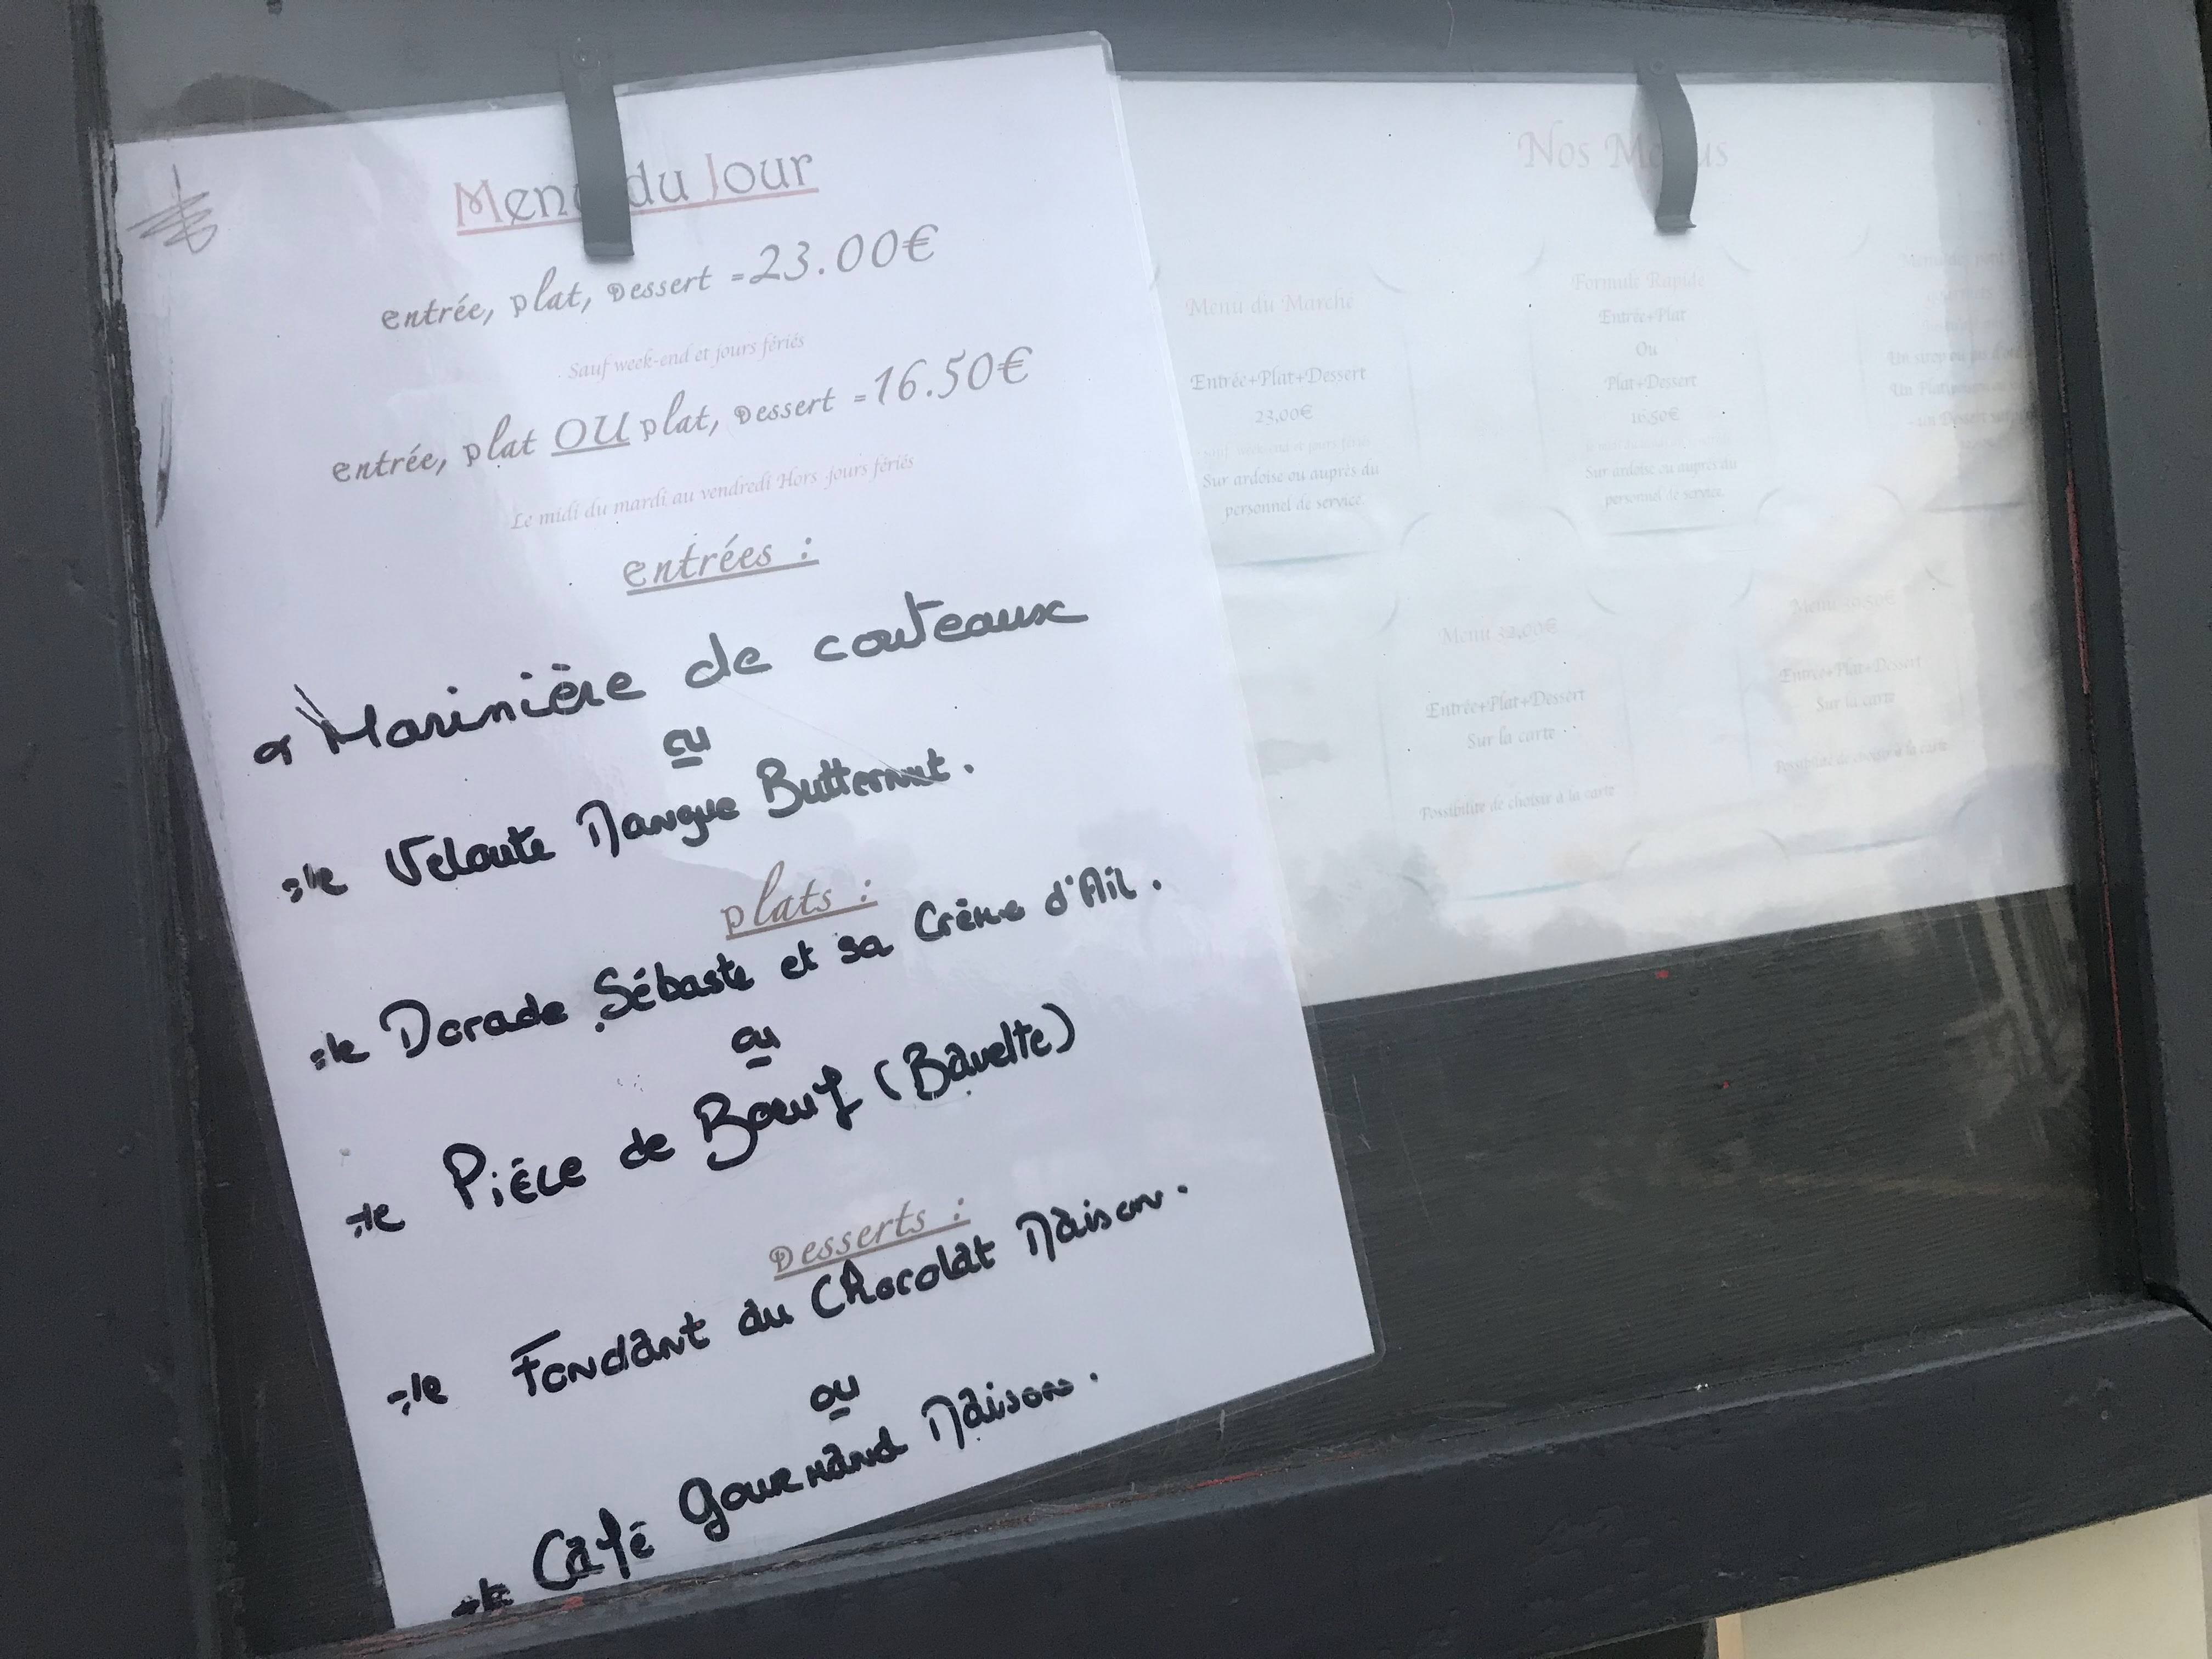 Menu du Jour
entrée, plat, Dessert =23.00€
Sauf week-end et jours fériés
entrée, plat OU plat, Dessert =16.50€
Le midi du mardi au vendredi Hors jours fériés
entrées :
Marinière de couteaux
ou
Velouté Mangue Butternut.
plats :
Dorade Sébaste et sa Crème d'Ail.
ou
Pièce de Bœuf (Bavette)
Desserts :
Fondant au Chocolat Maison.
ou
Café gourmand Maison.
Nos Menus
Menu du Marché
Entrée+Plat+Dessert
23,00€
sauf week-end et jours fériés
Sur ardoise ou auprès du
personnel de service.
Formule Rapide
Entrée+Plat
Ou
Plat+Dessert
16,50€
Sur ardoise ou auprès du
personnel de service.
Un sirop ou
Un Plat
un Dessert
Menu 32,00€
Entrée+Plat+Dessert
Sur la carte
Possibilité de choisir à la carte
Menu
Entrée+Plat+Dessert
Sur la carte
Possibilité de choisir à la carte